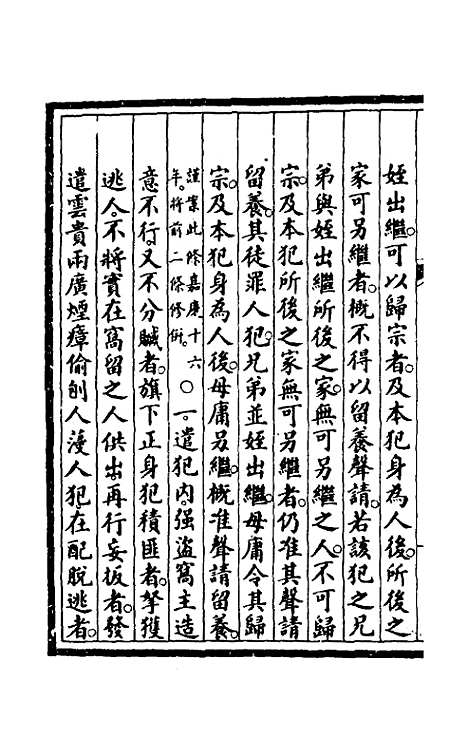 姪出繼。可以歸宗者。及本犯身為人後。所後之
家可另繼者。概不得以留養聲請。若該犯之兄
弟與姪出繼所後之家。無可另繼之人。不可歸
宗。及本犯所後之家無可另繼者。仍准其聲請
留養。其徒罪人犯。兄弟並姪出繼。毋庸令其歸
宗。及本犯身為人後。毋庸另繼。概准聲請留養。
謹案此條嘉慶十六
年。將前二條修併。
○一。遣犯内。强盜窩主造
意不行。又不分贓者。旗下正身犯積匪者。拏獲
逃人。不將實在窩留之人供出。再行妄扳者。發
遣雲貴兩廣煙瘴偷刨人薓人犯。在配脫逃者。